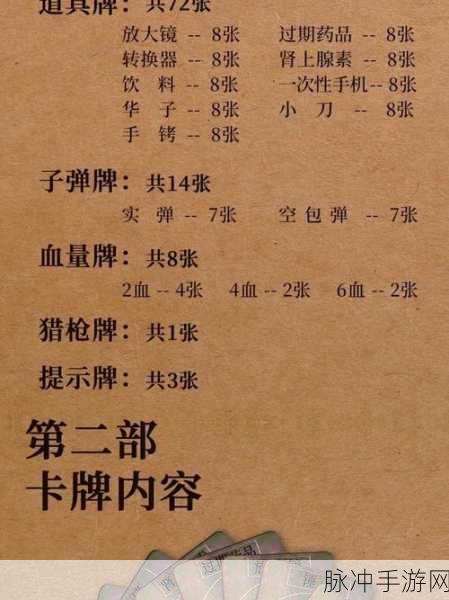 道具牌：共72张
放大镜 -- 8张 过期药品 -- 8张
转换器 -- 8张 肾上腺素 -- 8张
饮料 -- 8张 一次性手机 -- 8张
华子 -- 8张 小刀 -- 8张
手铐 -- 8张
子弹牌：共14张
实弹 -- 7张 空包弹 -- 7张
血量牌：共8张
2血 -- 4张 4血 -- 2张 6血 -- 2张
猎枪牌：共1张
提示牌：共3张
第二部
卡牌内容
脉冲手游网